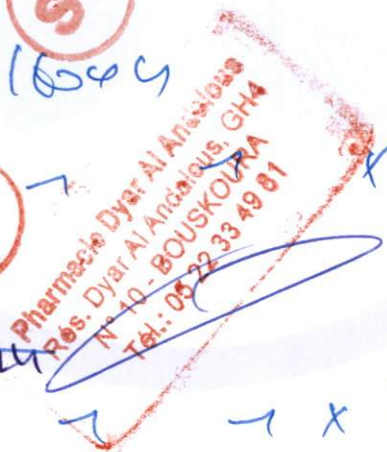 S
Pharmacie Dyar Al Andalous
Rés. Dyar Al Andalous, GH4
N° 10 - BOUSKOURA
Tél.: 05 22 33 49 81
x
x